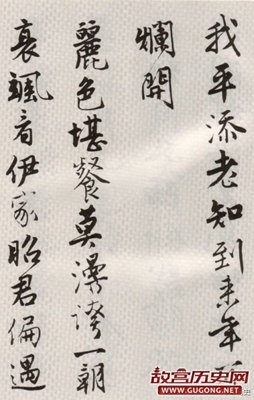 我平添老知到来年
爛開
麗色堪餐莫漫誇一朝
衰颯看伊家昭君偏遇
故宫历史网
GUGONG.NET